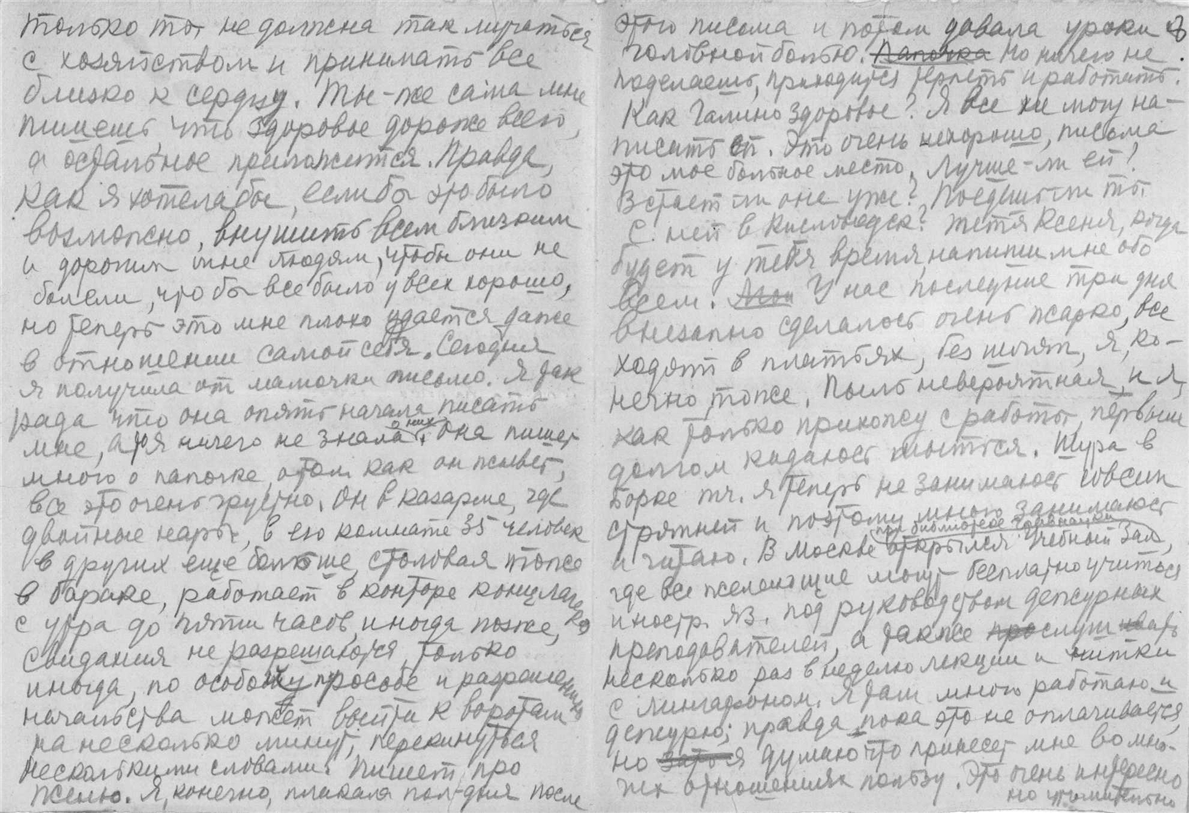 только ты не должна так мучаться
с хозяйством и принимать все
близко к сердцу. Ты-же сама мне
пишешь, что здоровье дороже всего,
а остальное приложится. Правда,
как я хотела бы, если бы это было
возможно, внушить всем близким
и дорогим мне людям, чтобы они не
болели, чтобы все было у всех хорошо,
но теперь это мне плохо удается даже
в отношении самой себя. Сегодня
я получила от мамочки письмо. Я так
рада что она опять начала писать
мне, а то я ничего не знала о них, она пишет
много о папочке, о том как он живет,
все это очень грустно. Он в казарме, где
двойные нары, в его комнате 35 человек
в других еще больше, столовая тоже
в бараке, работает в конторе концлагеря
с утра до пяти часов, иногда позже,
свидания не разрешаются, только
иногда, по особому просьбе и разрешению
начальства может выйти к воротам
на несколько минут, перекинуться
несколькими словами. Пишет про
Женю. Я, конечно, плакала пол-дня после
этого письма и потом давала уроки с
головной болью. Папочка Но ничего не
поделаешь, приходится терпеть и работать.
Как Галино здоровье? Я все не могу на-
писать ей. Это очень нехорошо, письма
это мое больное место. Лучше-ли ей?
Встает ли она уже? Поедешь ли ты
с ней в Кисловодск? Тетя Ксеня, когда
будет у тебя время, напиши мне обо
всем. У нас последние три дня
внезапно сделалось очень жарко, все
ходят в платьях, без шляп, я, ко-
нечно, тоже. Пыль невероятная, и я,
как только прихожу с работы, первым
долгом кидаюсь мыться. Шура в
Борке и я теперь не занимаюсь совсем
стряпней и поэтому много занимаюсь
и читаю. В Москве при библиотеке открылся Учебный Зал,
где все желающие могут бесплатно учиться
иностр. яз. под руководством дежурных
преподавателей, а также слушать
несколько раз в неделю лекции и читки
с лингафоном. Я там много работаю и
дежурю; правда, пока это не оплачивается,
но я думаю что принесет мне во мно-
гих отношениях пользу. Это очень интересно
но утомительно